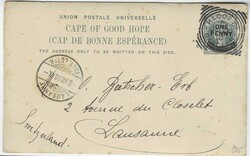 UNION POSTALE UNIVERSELLE
CAPE OF GOOD HOPE
(CAP DE BONNE ESPÉRANCE)
THE ADDRESS ONLY TO BE WRITTEN ON THIS SIDE.
ONE
PENNY
LAUSANNE
2 Avenue du Closelet
Lausanne
Switzerland.